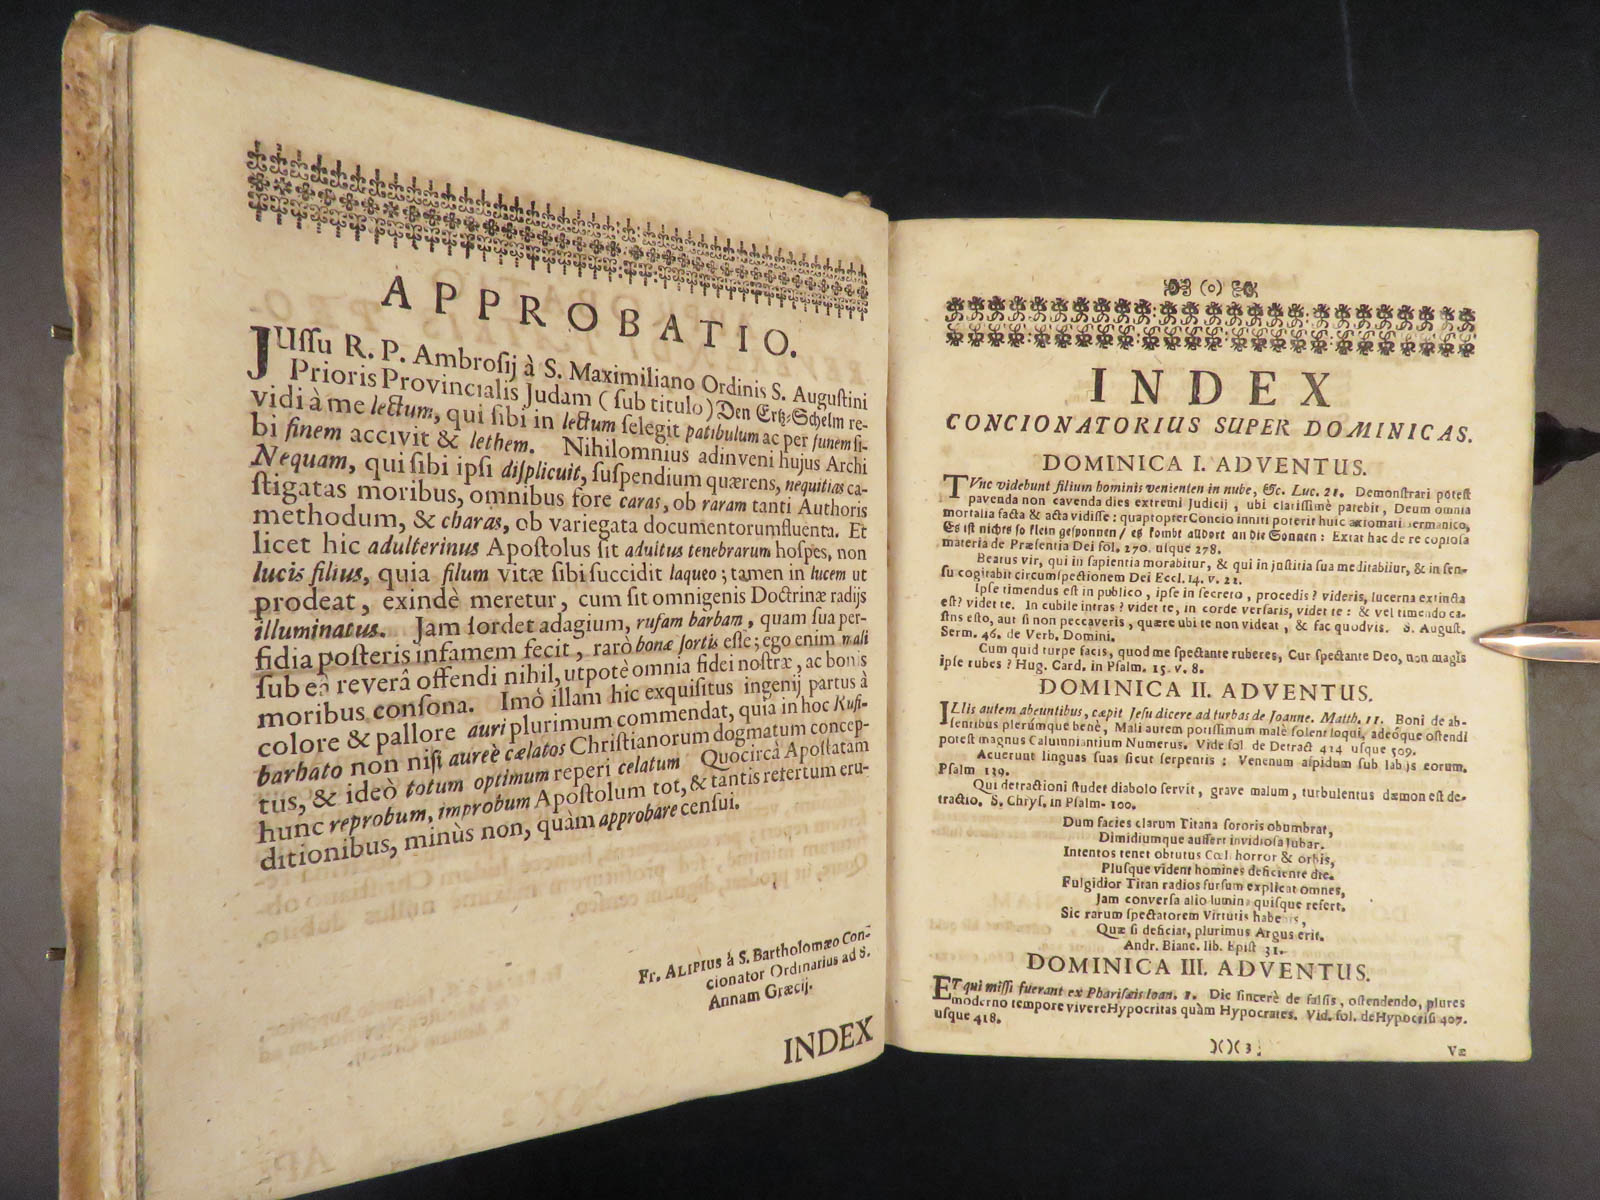 APPROBATIO.
JUſſu R. P. Ambroſij à S. Maximiliano Ordinis S. Auguſtini
Prioris Provincialis Judam (ſub titulo) Den Ertz-Schelm re-
vidi à me lectum, qui ſibi in lectum ſelegit patibulum ac per funem ſi-
bi finem accivit & lethem. Nihilomnius adinveni hujus Archi
Nequam, qui ſibi ipſi diſplicuit, ſuſpendium quærens, nequitias ca-
ſtigatas moribus, omnibus fore caras, ob raram tanti Authoris
methodum, & charas, ob variegata documentorum fluenta. Et
licet hic adulterinus Apoſtolus ſit adultus tenebrarum hoſpes, non
lucis filius, quia filum vitæ ſibi ſuccidit laqueo; tamen in lucem ut
prodeat, exindè meretur, cum ſit omnigenis Doctrinæ radijs
illuminatus. Jam ſordet adagium, rufam barbam, quam ſua per-
fidia poſteris infamem fecit, rarò bonæ ſortis eſſe; ego enim mali
ſub eâ reverâ offendi nihil, utpotè omnia fidei noſtræ, ac bonis
moribus conſona. Imò illam hic exquiſitus ingenij partus à
colore & pallore auri plurimum commendat, quia in hoc Rufi-
barbato non niſi aureè cælatos Chriſtianorum dogmatum concep-
tus, & ideò totum optimum reperi celatum Quocircà Apoſtatam
hunc reprobum, improbum Apoſtolum tot, & tantis refertum eru-
ditionibus, minùs non, quàm approbare cenſui.
Fr. ALIPIUS à S. Bartholomæo Con-
cionator Ordinarius ad S.
Annam Græcij.
INDEX
(o)
INDEX
CONCIONATORIUS SUPER DOMINICAS.
DOMINICA I. ADVENTUS.
TVnc videbunt filium hominis venienten in nube, &c. Luc. 21. Demonſtrari poteſt
pavenda non cavenda dies extremi Judicij, ubi clariſſimè patebit, Deum omnia
mortalia facta & acta vidiſſe: quapropter Concio inniti poterit huic axiomati Germanico,
Es iſt nichts ſo klein geſponnen / es kombt alldort an die Sonnen: Extat hac de re copioſa
materia de Præſentia Dei fol. 270. uſque 278.
Beatus vir, qui in ſapientia morabitur, & qui in juſtitia ſua meditabitur, & in ſen-
ſu cogitabit circumſpectionem Dei Eccl. 14. v. 22.
Ipſe timendus eſt in publico, ipſe in ſecreto, procedis? videris, lucerna extincta
eſt? videt te. In cubile intras? videt te, in corde verſaris, videt te: & vel timendo ca-
ſtns eſto, aut ſi non peccaveris, quære ubi te non videat, & fac quodvis. S. Auguſt.
Serm. 46. de Verb. Domini.
Cum quid turpe facis, quod me ſpectante ruberes, Cur ſpectante Deo, non magis
ipſe rubes? Hug. Card. in Pſalm. 15. v. 8.
DOMINICA II. ADVENTUS.
ILlis autem abeuntibus, cœpit Jeſu dicere ad turbas de Joanne. Matth. 11. Boni de ab-
ſentibus plerúmque benè, Mali autem potiſſimum malè ſolent loqui, adeóque oſtendi
poteſt magnus Calumniantium Numerus. Vide fol. de Detract 414 uſque 509.
Acuerunt linguas ſuas ſicut ſerpentis: Venenum aſpidum ſub labijs eorum.
Pſalm 139.
Qui detractioni ſtudet diabolo ſervit, grave malum, turbulentus dæmon eſt de-
tractio. S. Chryſ. in Pſalm. 100.
Dum facies clarum Titana ſororis obumbrat,
Dimidiumque auffert invidioſa jubar.
Intentos tenet obtutus Cœl. horror & orbis,
Pluſque vident homines deficiente die.
Fulgidior Titan radios ſurſum explicat omnes,
Jam converſa alio lumina quiſque refert.
Sic rarum ſpectatorem Virtutis habenis,
Quæ ſi deficiat, plurimus Argus erit.
Andr. Bianc. lib. Epiſt 31.
DOMINICA III. ADVENTUS.
ET qui miſſi fuerant ex Phariſæis Ioan. 1. Dic ſincerè de falſis, oſtendendo, plures
moderno tempore vivere Hypocritas quàm Hypocrates. Vid. fol. de Hypocriſi 407.
uſque 418.
)()( 3
Væ